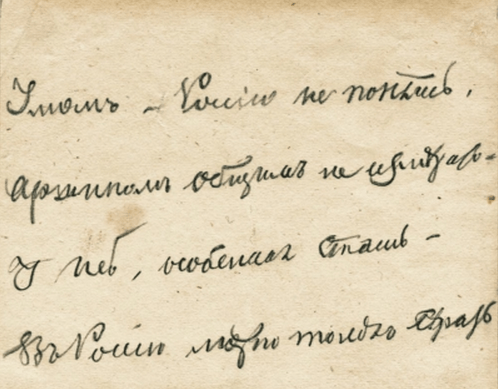 Умомъ – Россію не понять,
Аршиномъ общимъ не измѣрь –
У ней, особенная стать –
Въ Россію можно только вѣрить